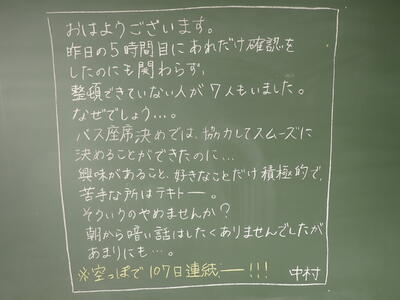 おはようございます。
昨日の5時間目にあれだけ確認を
したのにも関わらず、
整頓できていない人が7人もいました。
なぜでしょう…。
バス座席決めでは、協力してスムーズに
決めることができたのに…
興味があること、好きなことだけ積極的で、
苦手な所はテキトー。
そういうのやめませんか？
朝から暗い話はしたくありませんでしたが
あまりにも…。
※空っぽで107日連続ー!!! 中村